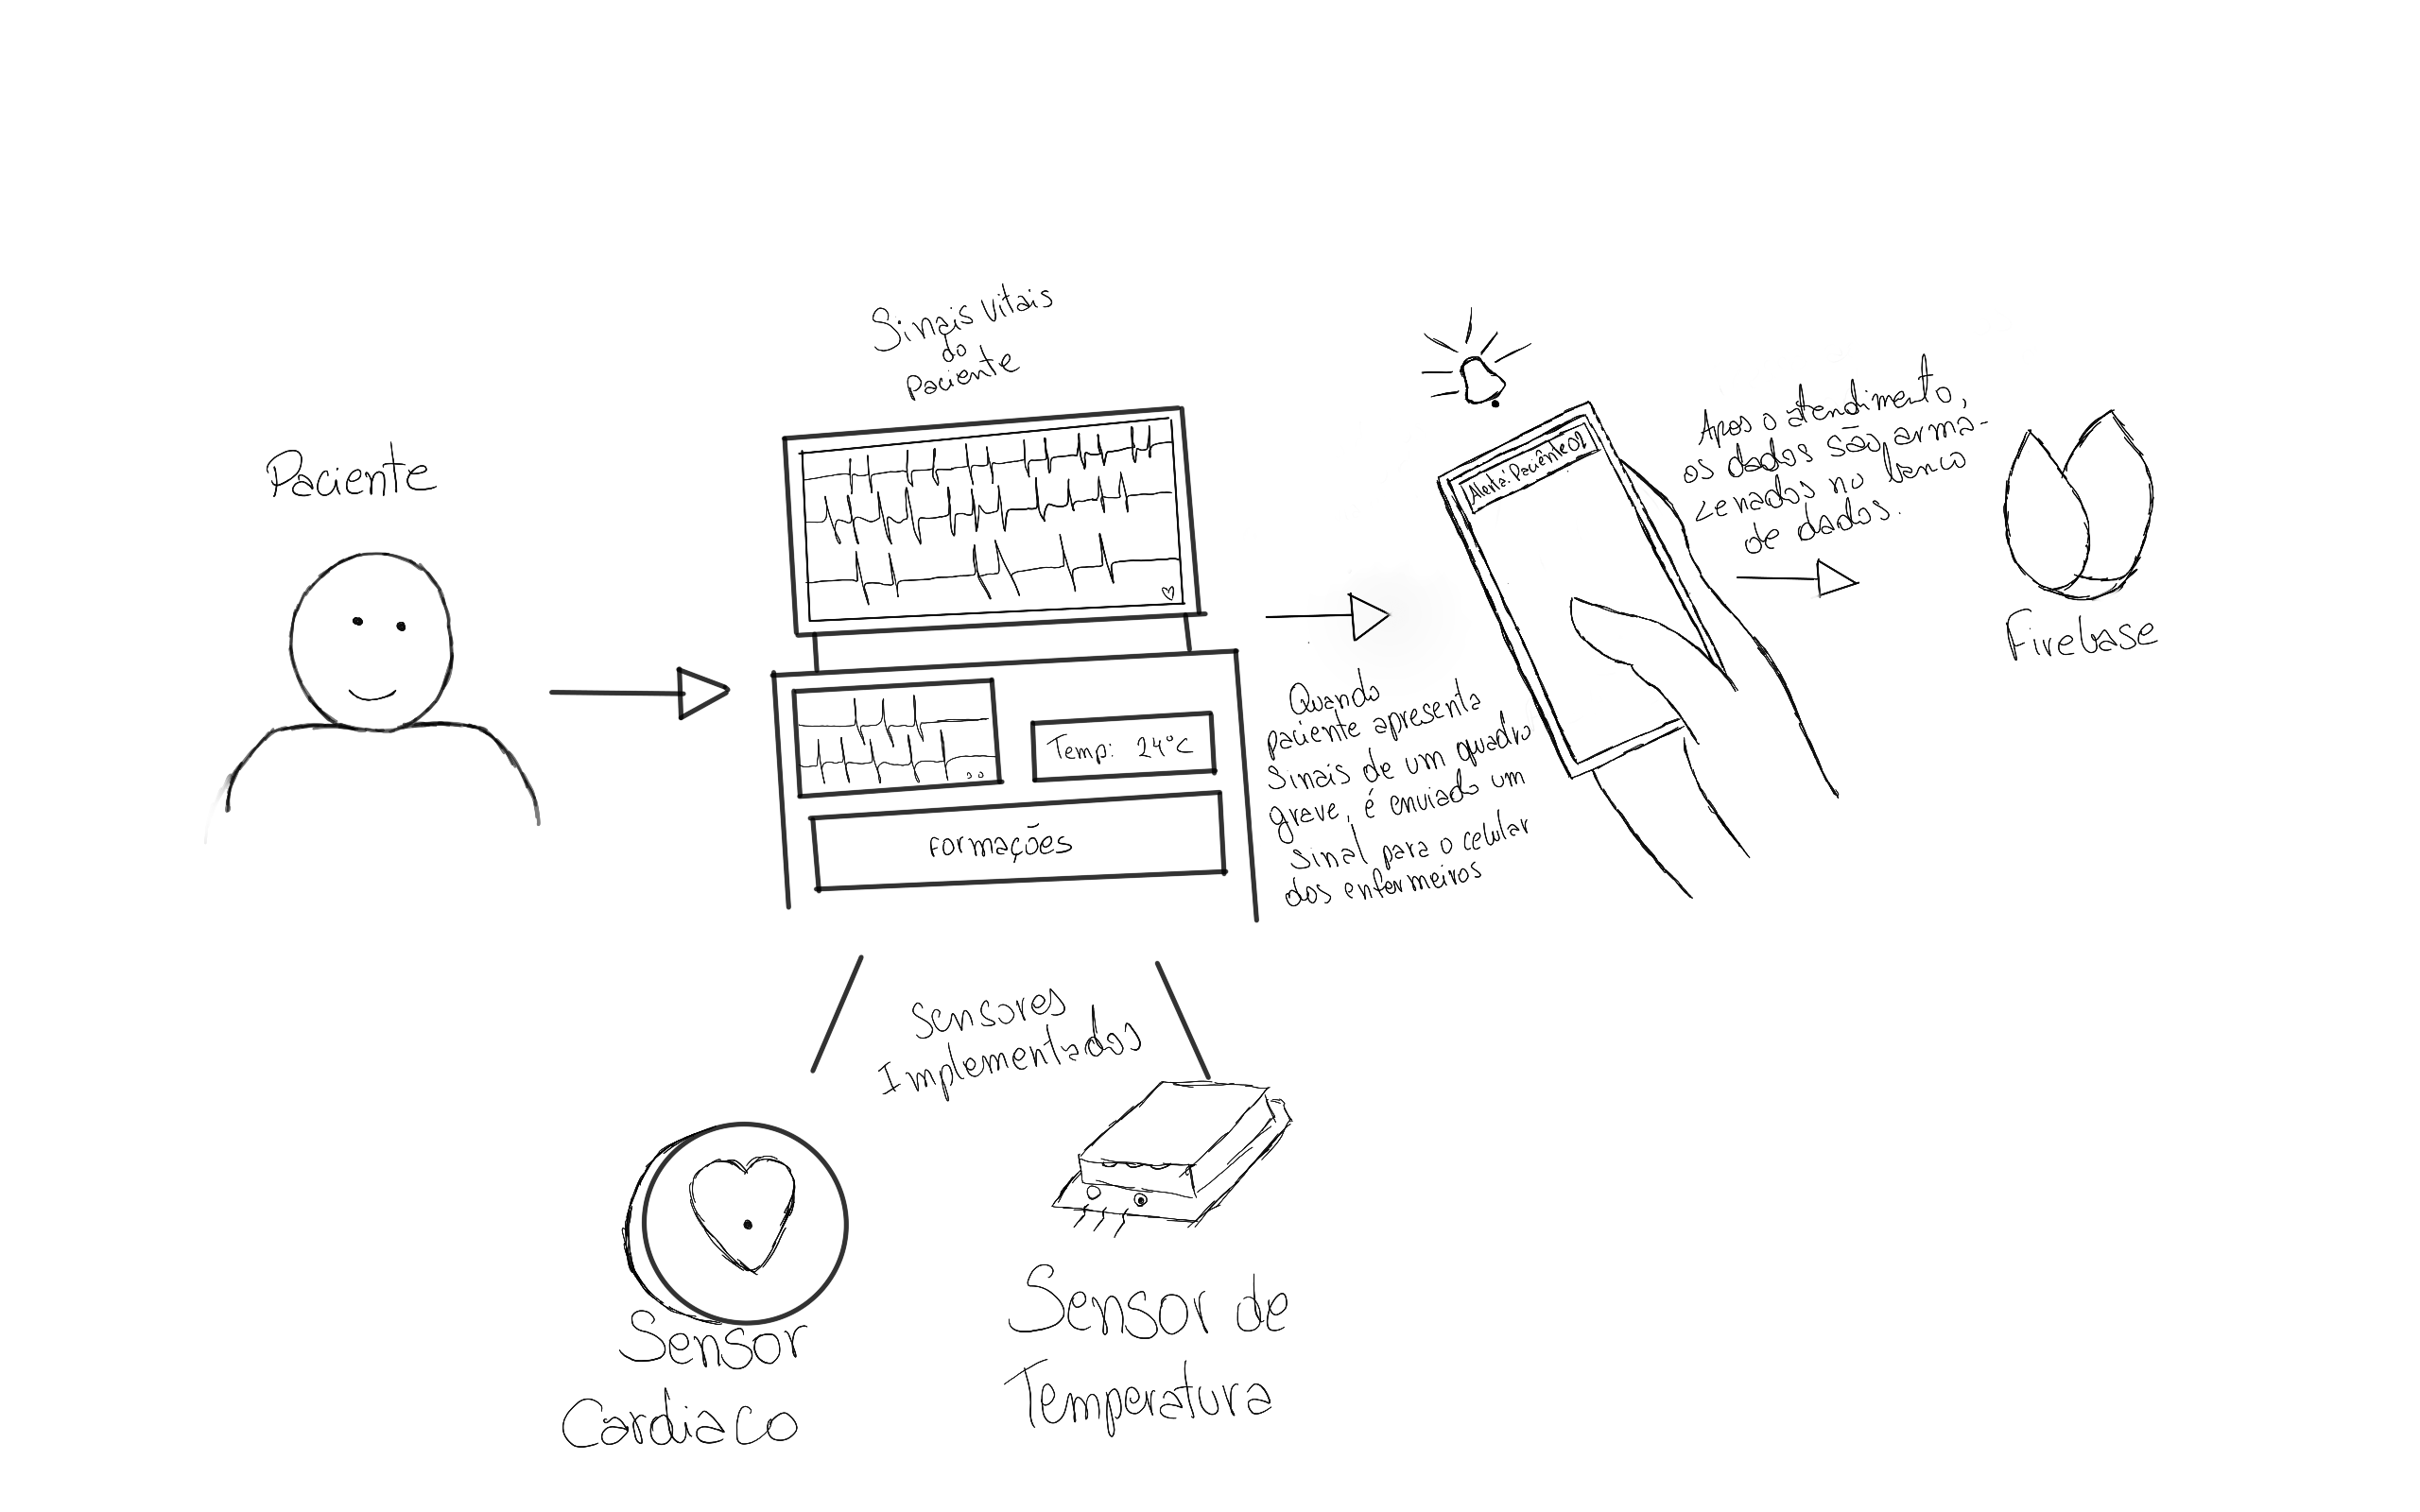 Paciente
Sinais vitais
do
paciente
Temp: 24°C
Formações
Quando
paciente apresenta
sinais de um quadro
grave, é enviado um
sinal para o celular
dos enfermeiros
Alerta: Paciênte 02
Apos o atendimento,
os dados são arma-
zenados no banco
de dados.
Firebase
Sensores
Implementados
Sensor
Cardiaco
Sensor de
Temperatura